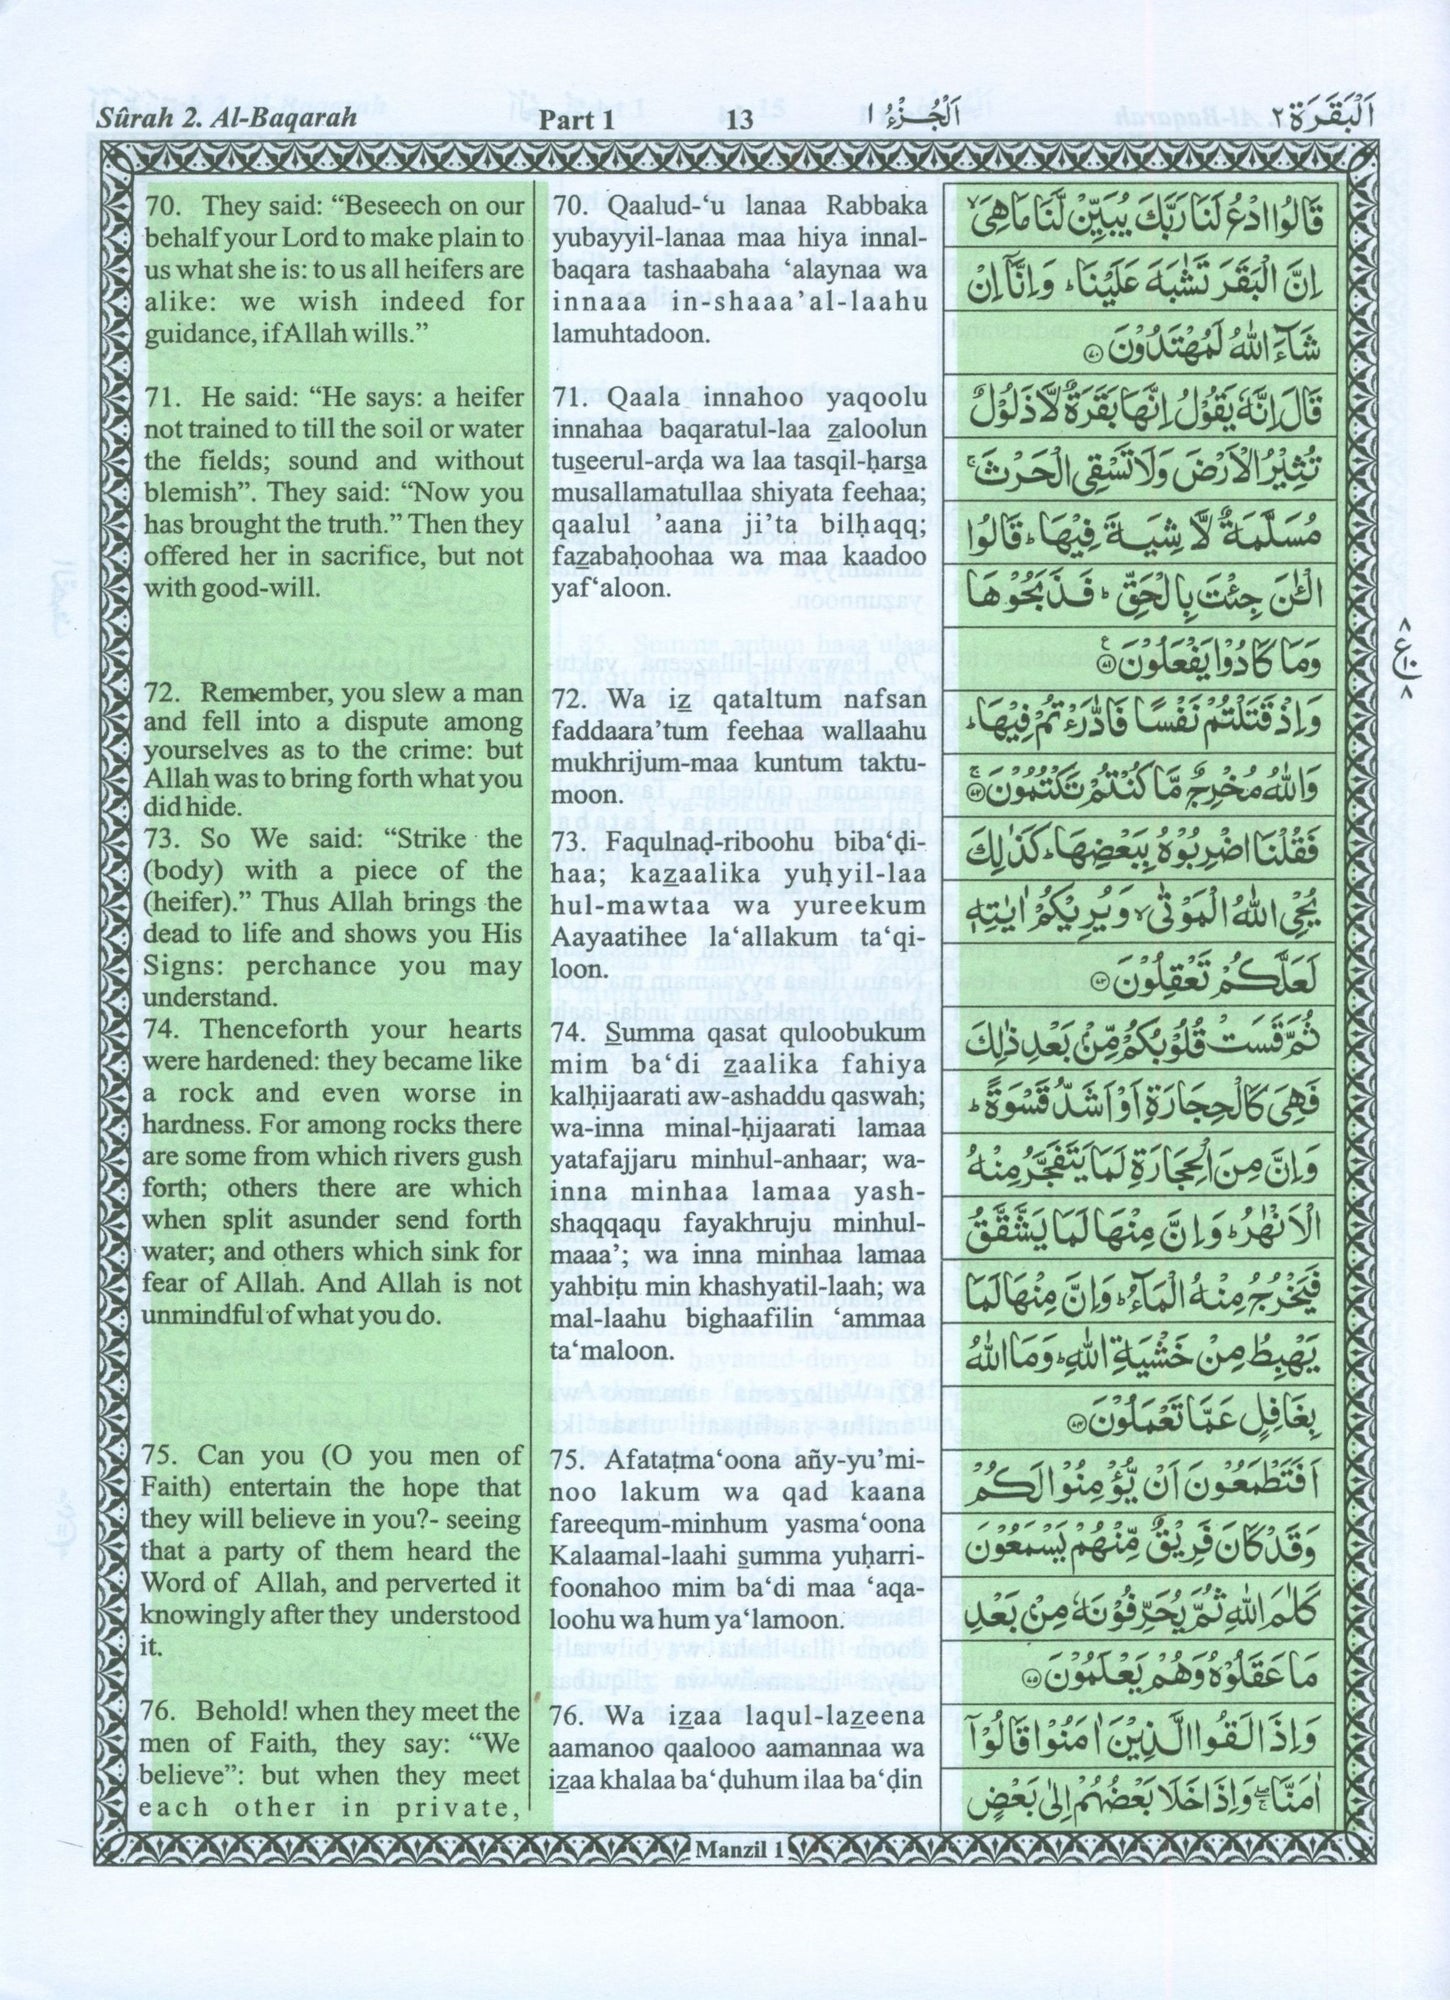 Sûrah 2. Al-Baqarah
Part 1
13
اَلْجُزْءُ ١
اَلْبَقَرَة ٢
70. They said: “Beseech on our
behalf your Lord to make plain to
us what she is: to us all heifers are
alike: we wish indeed for
guidance, if Allah wills.”
71. He said: “He says: a heifer
not trained to till the soil or water
the fields; sound and without
blemish”. They said: “Now you
has brought the truth.” Then they
offered her in sacrifice, but not
with good-will.
72. Remember, you slew a man
and fell into a dispute among
yourselves as to the crime: but
Allah was to bring forth what you
did hide.
73. So We said: “Strike the
(body) with a piece of the
(heifer).” Thus Allah brings the
dead to life and shows you His
Signs: perchance you may
understand.
74. Thenceforth your hearts
were hardened: they became like
a rock and even worse in
hardness. For among rocks there
are some from which rivers gush
forth; others there are which
when split asunder send forth
water; and others which sink for
fear of Allah. And Allah is not
unmindful of what you do.
75. Can you (O you men of
Faith) entertain the hope that
they will believe in you?- seeing
that a party of them heard the
Word of Allah, and perverted it
knowingly after they understood
it.
76. Behold! when they meet the
men of Faith, they say: “We
believe”: but when they meet
each other in private,
70. Qaalud-‘u lanaa Rabbaka
yubayyil-lanaa maa hiya innal-
baqara tashaabaha ‘alaynaa wa
innaaa in-shaaa ’al-laahu
lamuhtadoon.
71. Qaala innahoo yaqoolu
innahaa baqaratul-laa zaloolun
tuseerul-arḍa wa laa tasqil-ḥarsa
musallamatullaa shiyata feehaa;
qaalul ’aana ji’ta bilhaqq;
fazabaḥoohaa wa maa kaadoo
yaf‘aloon.
72. Wa iz qataltum nafsan
faddaara’tum feehaa wallaahu
mukhrijum-maa kuntum taktu-
moon.
73. Faqulnaḍ-riboohu biba‘ḍi-
haa; kazaalika yuḥyil-laa
hul-mawtaa wa yureekum
Aayaatihee la‘allakum ta‘qi-
loon.
74. Summa qasat quloobukum
mim ba‘di zaalika fahiya
kalḥijaarati aw-ashaddu qaswah;
wa-inna minal-ḥijaarati lamaa
yatafajjaru minhul-anhaar; wa-
inna minhaa lamaa yash-
shaqqaqu fayakhruju minhul-
maaa’; wa inna minhaa lamaa
yahbiṭu min khashyatil-laah; wa
mal-laahu bighaafilin ‘ammaa
ta‘maloon.
75. Afataṭma‘oona añy-yu’mi-
noo lakum wa qad kaana
fareequm-minhum yasma‘oona
Kalaamal-laahi summa yuḥarri-
foonahoo mim ba‘di maa ‘aqa-
loohu wa hum ya‘lamoon.
76. Wa izaa laqul-lazeena
aamanoo qaalooo aamannaa wa
izaa khalaa ba‘ḍuhum ilaa ba‘ḍin
قَالُوا ادْعُ لَنَا رَبَّكَ يُبَيِّنْ لَّنَا مَا هِيَ ۙ
اِنَّ الْبَقَرَ تَشٰبَهَ عَلَيْنَا ؕ وَاِنَّاۤ اِنْ
شَآءَ اللّٰهُ لَمُهْتَدُوْنَ ۝۷۰
قَالَ اِنَّهٗ يَقُوْلُ اِنَّهَا بَقَرَةٌ لَّا ذَلُوْلٌ
تُثِيْرُ الْاَرْضَ وَلَا تَسْقِى الْحَرْثَ ۚ
مُسَلَّمَةٌ لَّا شِيَةَ فِيْهَا ؕ قَالُوا
الْـٰٔنَ جِئْتَ بِالْحَقِّ ؕ فَذَبَحُوْهَا
وَمَا كَادُوْا يَفْعَلُوْنَ ۝۷۱
وَاِذْ قَتَلْتُمْ نَفْسًا فَادّٰرَءْتُمْ فِيْهَا ؕ
وَاللّٰهُ مُخْرِجٌ مَّا كُنْتُمْ تَكْتُمُوْنَ ۝۷۲
فَقُلْنَا اضْرِبُوْهُ بِبَعْضِهَا ؕ كَذٰلِكَ
يُحْىِ اللّٰهُ الْمَوْتٰى ۙ وَيُرِيْكُمْ اٰيٰتِهٖ
لَعَلَّكُمْ تَعْقِلُوْنَ ۝۷۳
ثُمَّ قَسَتْ قُلُوْبُكُمْ مِّنْۢ بَعْدِ ذٰلِكَ
فَهِىَ كَالْحِجَارَةِ اَوْ اَشَدُّ قَسْوَةً ؕ
وَاِنَّ مِنَ الْحِجَارَةِ لَمَا يَتَفَجَّرُ مِنْهُ
الْاَنْهٰرُ ؕ وَاِنَّ مِنْهَا لَمَا يَشَّقَّقُ
فَيَخْرُجُ مِنْهُ الْمَآءُ ؕ وَاِنَّ مِنْهَا لَمَا
يَهْبِطُ مِنْ خَشْيَةِ اللّٰهِ ؕ وَمَا اللّٰهُ
بِغَافِلٍ عَمَّا تَعْمَلُوْنَ ۝۷۴
اَفَتَطْمَعُوْنَ اَنْ يُّؤْمِنُوْا لَكُمْ
وَقَدْ كَانَ فَرِيْقٌ مِّنْهُمْ يَسْمَعُوْنَ
كَلٰمَ اللّٰهِ ثُمَّ يُحَرِّفُوْنَهٗ مِنْۢ بَعْدِ
مَا عَقَلُوْهُ وَهُمْ يَعْلَمُوْنَ ۝۷۵
وَاِذَا لَقُوا الَّذِيْنَ اٰمَنُوْا قَالُوْۤا
اٰمَنَّا ۖۚ وَاِذَا خَلَا بَعْضُهُمْ اِلٰى بَعْضٍ
٨
ع
١٠
٨
Manzil 1